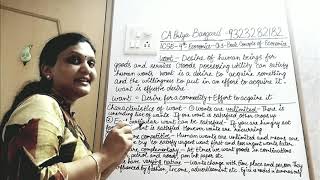 CA Priya Bangard 9323282182
ICSE - 9th Economics - Q.3 - Basic Concepts of Economics
want - Desire of human beings for
goods and services (Goods possessing utility) can satisfy
human wants want is a desire to acquire something
and the willingness to put in an effort to acquire it
want is effective desire
want = Desire for a commodity + Effort to acquire it
Characteristics of want - ① wants are unlimited - There is
unending line of wants. If one want is satisfied other crops up
particular want can be satisfied - If you are hungry eat
is satisfied. However wants are recurring
are competitive - Human wants are unlimited and means are
to satisfy urgent want first and less urgent wants later
are complementary - At times we want goods in combinations
petrol, and pen, ink paper etc
varying nature - Wants change with time, place and person. They
influenced by fashion, income, advertisement etc.